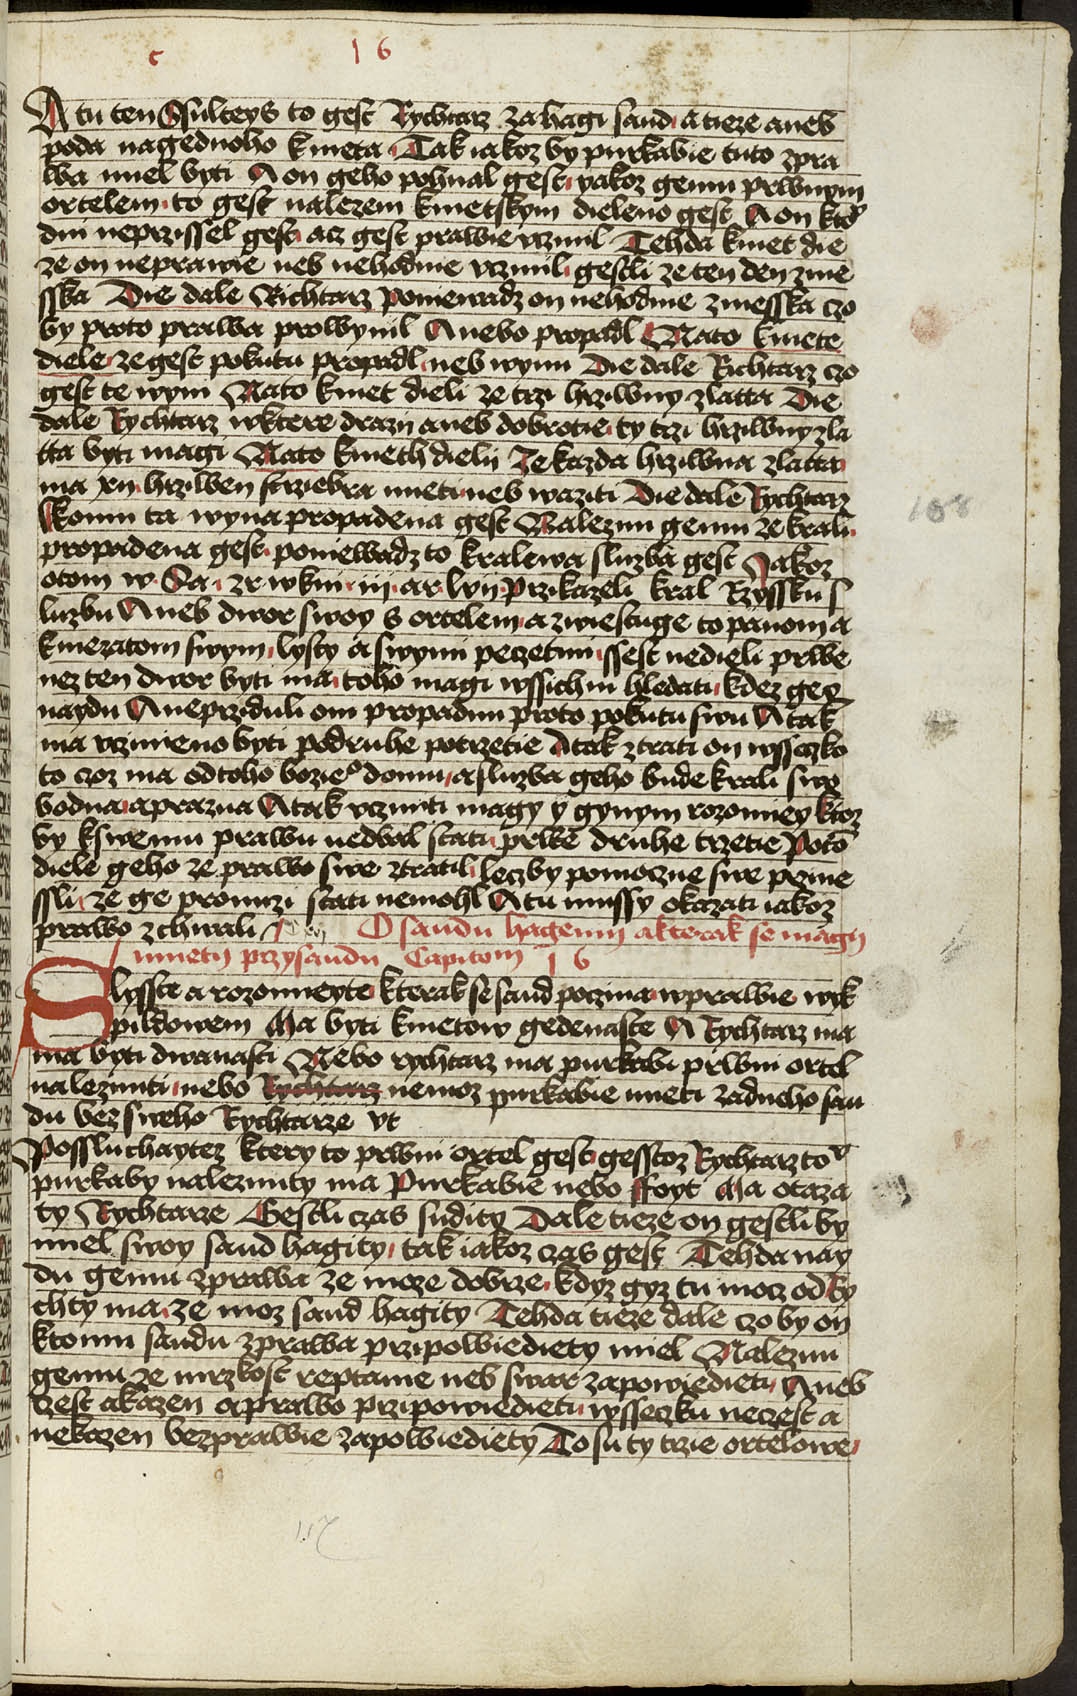 c 16
A tu ten Ssulteys to gest Rychtarz zahagi saud a tieze aneb
poda nagednoho kmeta Tak iakoz by purkabie tuto zpra
wa miel byti A on geho pohnal gest yakoz gemu prwnym
ortelem to gest nalezem kmetskym dieleno gest A on
dni neprzissel gest acz gest prawie vczinil Tehda kmet die
ze on neprawie neb nehodnie vczinil gestli ze ten den zme
sska Die dale Richtarz poniewadz on nehodnie zmesska czo
by proto prawa prowynil Anebo propadl Nato kmete
diele ze gest pokutu propadl neb wynu Die dale Richtarz czo
gest te wyny Nato kmet dieli ze trzi hrziwny zlatta Die
dale Rychtarz wktere drazij aneb dobrotie ty trzi hrziwny zla
tta byti magi Nato kmeth dielij Ze kazda hrziwna zlatta
ma xij hrziwen strziebra mieti neb waziti Die dale Rychtarz
Komu ta wyna propadena gest Naleznu gemu ze krali
propadena gest poniewadz to kralewa sluzba gest Jakoz
otom w Ca zr wkni iij ar lvij Przikazeli kral Rzyssku s
luzbu Aneb dwor swoy s ortelem a zwiestuge to panom a
kniezatom swym lysty a swymi peczetmi ssest nedieli prwe
nez ten dwor byti ma toho magi wssichni hledati kdez gey
naydu A neprziduli oni propadnu proto pokutu swu A tak
ma vczineno byti podruhe potrzetie A tak ztrati on wssiczko
to czoz ma odtoho bozieho domu a sluzba geho bude krali swo
bodna a prazna A tak vczinti magy y gynym rozomiey ktoz
by kswemu prawu nedbal stati prwe druhe trzetie Poto
diele geho ze prawo swe ztratil leczby pomoczne swe przine
ssli ze ge pronuzi stati nemohl A tu mussy okazati iakoz
prawo zchwali O saudu hagenij akterak se magij
mietij przysaudu Capitom 16
Slysste a rozomieyte kterak se saud poczina wprawie wyk
pildowem Ma byti kmetow gedenaste A Rychtarz ma
ma byti dwanasti Nebo rychtarz ma purkabi prwni ortel
nalezniti nebo Rychtarz nemoz purkabie mieti zadneho sau
du bez sweho Rychtarze vt
Possluchaytez ktery to prwni ortel gest gesstoz Rychtarz to
purkaby nalezniity ma Purkabie nebo ffoyt Ma otaza
ty Rychtarze Gestli czas sudity Dale tieze on gestli by
miel swoy saud hagity tak iakoz czas gest Tehda nay
du gemu zprawa ze moze dobrze kdyz gyz tu mocz od ty
chty ma ze moz saud hagity Tehda tieze dale czo by on
ktomu saudu zprawa przipowiediety miel Naleznu
gemu ze mrzkost reptanie neb swar zapowiedieti Aneb
czest a kazen a prawo przipowiedieti wsseczku neczest a
nekazen bezprawie zapowiediety To su ty trzie ortelowe
108
117